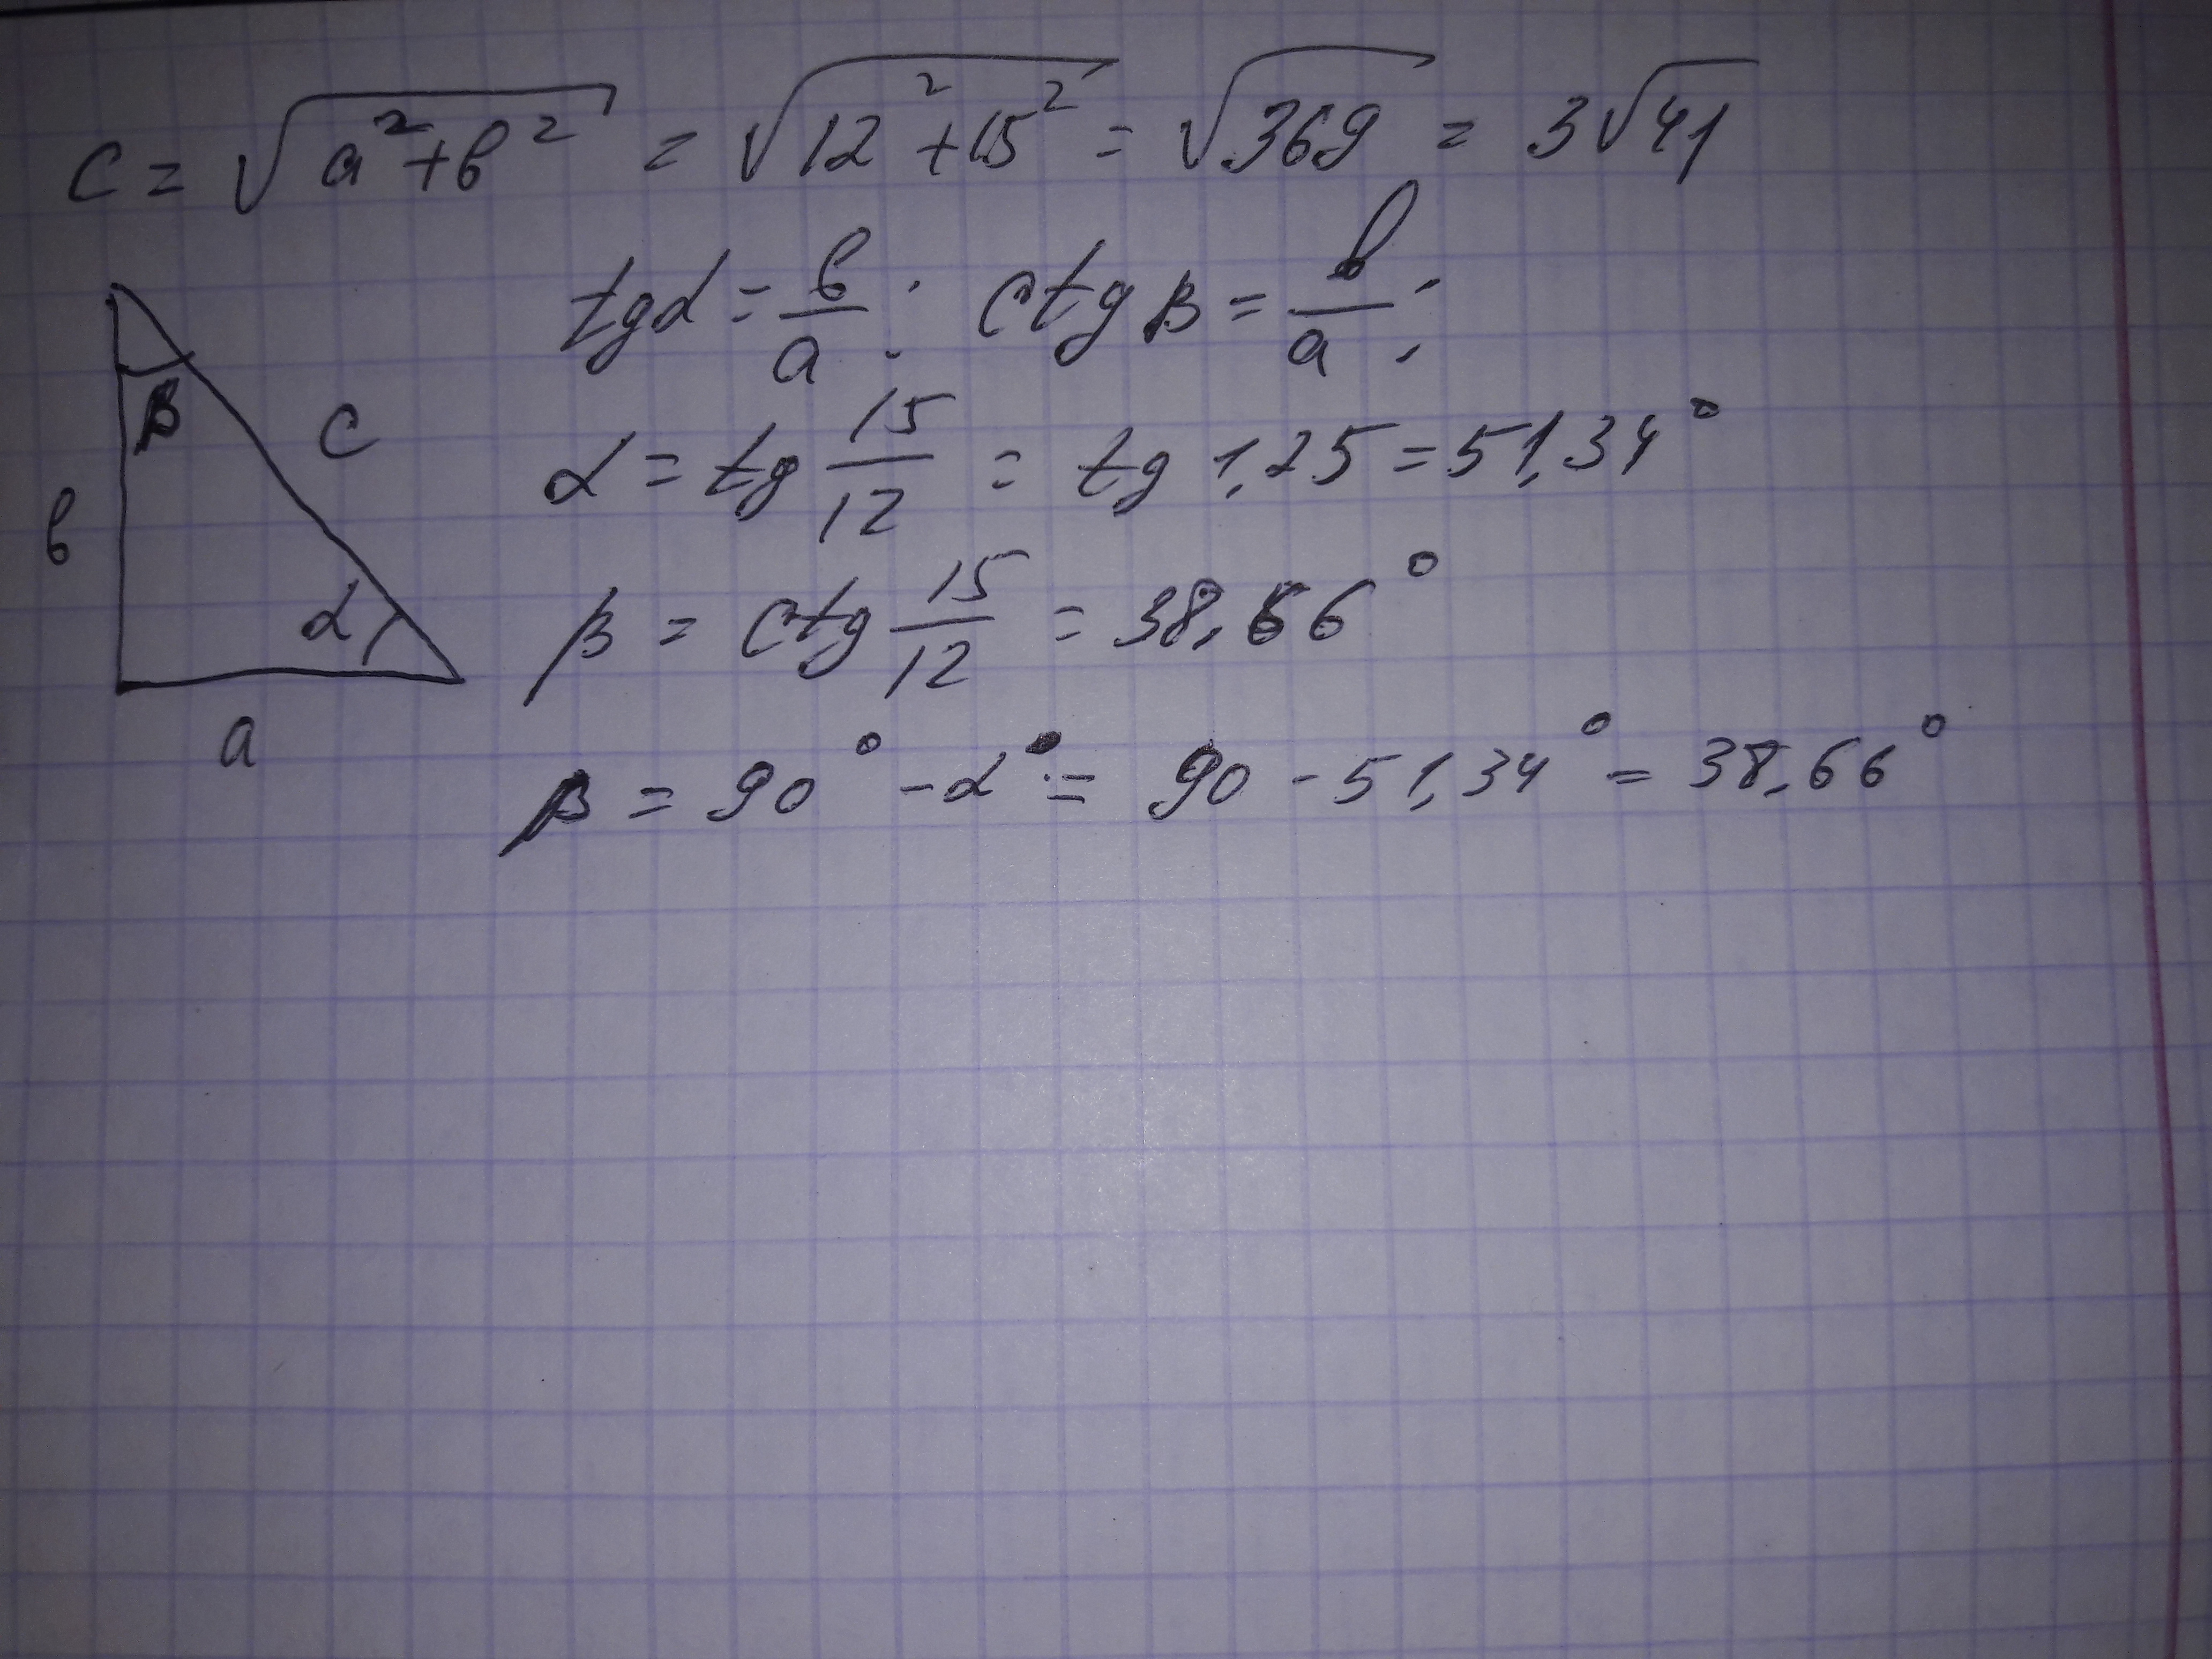 c = √(a² + в²) = √(12² + 15²) = √369 = 3√41
tgα = в/a ; ctg β = b/a ;
β
c
α = tg 15/12 = tg 1,25 = 51,34°
в
β = ctg 15/12 = 38,66°
α
a
β = 90° - α° = 90 - 51,34° = 38,66°